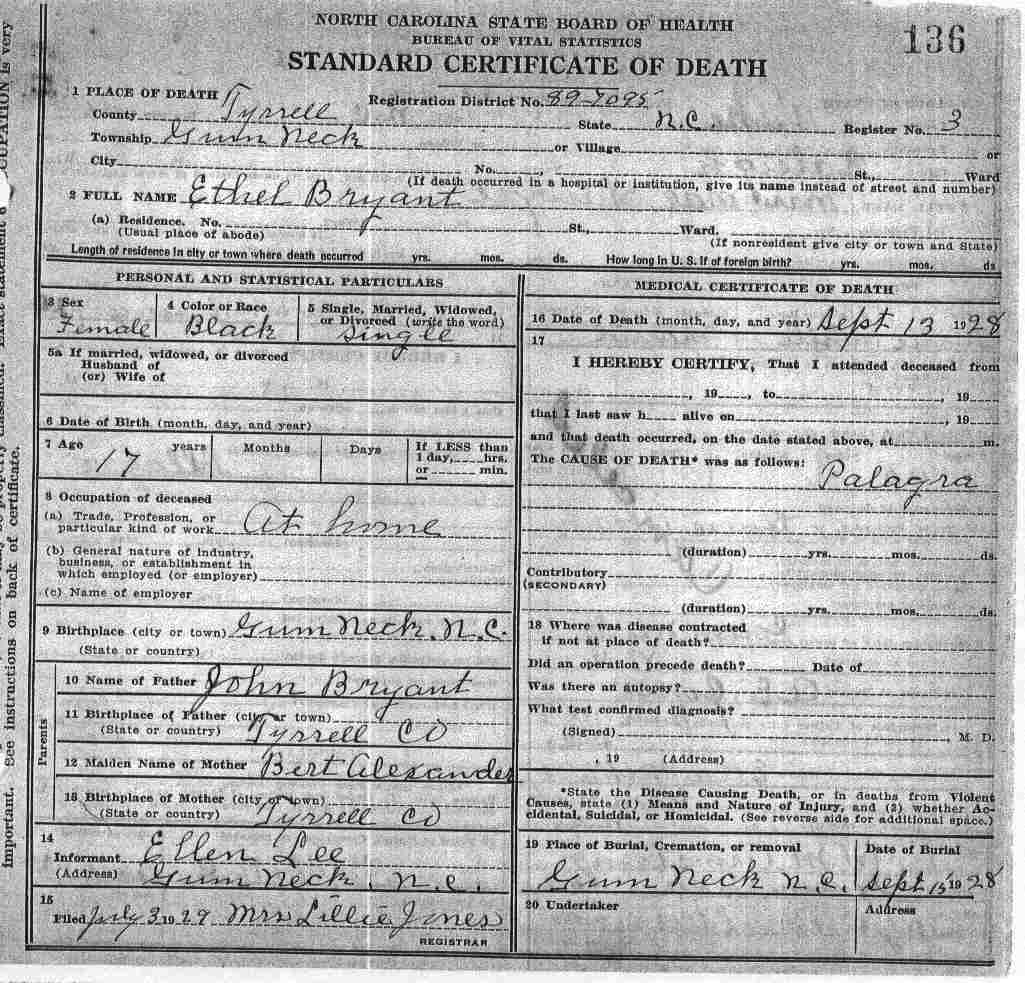 NORTH CAROLINA STATE BOARD OF HEALTH
BUREAU OF VITAL STATISTICS
STANDARD CERTIFICATE OF DEATH
136
1 PLACE OF DEATH
Registration District No. 89-7095
County Tyrrell State N.C. Register No. 3
Township Gum Neck or Village or
City No. , St., Ward
(If death occurred in a hospital or institution, give its name instead of street and number)
2 FULL NAME Ethel Bryant
(a) Residence. No. St., Ward.
(Usual place of abode) (If nonresident give city or town and State)
Length of residence in city or town where death occurred yrs. mos. ds. How long in U. S. if of foreign birth? yrs. mos. ds
PERSONAL AND STATISTICAL PARTICULARS
3 Sex
Female
4 Color or Race
Black
5 Single, Married, Widowed,
or Divorced (write the word)
Single
5a If married, widowed, or divorced
Husband of
(or) Wife of
6 Date of Birth (month, day, and year)
7 Age years Months Days If LESS than
17 1 day, hrs.
or min.
8 Occupation of deceased
(a) Trade, Profession, or
particular kind of work At home
(b) General nature of industry,
business, or establishment in
which employed (or employer)
(c) Name of employer
9 Birthplace (city or town) Gum Neck, N.C.
(State or country)
Parents
10 Name of Father John Bryant
11 Birthplace of Father (city or town)
(State or country) Tyrrell Co
12 Maiden Name of Mother Bert Alexander
13 Birthplace of Mother (city or town)
(State or country) Tyrrell Co
14
Informant Ellen Lee
(Address) Gum Neck, N.C.
15
Filed July 3 1929 Mrs Lillie Jones
REGISTRAR
MEDICAL CERTIFICATE OF DEATH
16 Date of Death (month, day, and year) Sept 13 1928
17
I HEREBY CERTIFY, That I attended deceased from
, 19 , to , 19
that I last saw h alive on , 19
and that death occurred, on the date stated above, at m.
The CAUSE OF DEATH* was as follows:
Palagra
(duration) yrs. mos. ds.
Contributory
(SECONDARY)
(duration) yrs. mos. ds.
18 Where was disease contracted
if not at place of death?
Did an operation precede death? Date of
Was there an autopsy?
What test confirmed diagnosis?
(Signed) , M. D.
, 19 (Address)
*State the Disease Causing Death, or in deaths from Violent
Causes, state (1) Means and Nature of Injury, and (2) whether Ac-
cidental, Suicidal, or Homicidal. (See reverse side for additional space.)
19 Place of Burial, Cremation, or removal
Gum Neck N.C.
Date of Burial
Sept 15 1928
20 Undertaker
Address
important. See instructions on back of certificate.